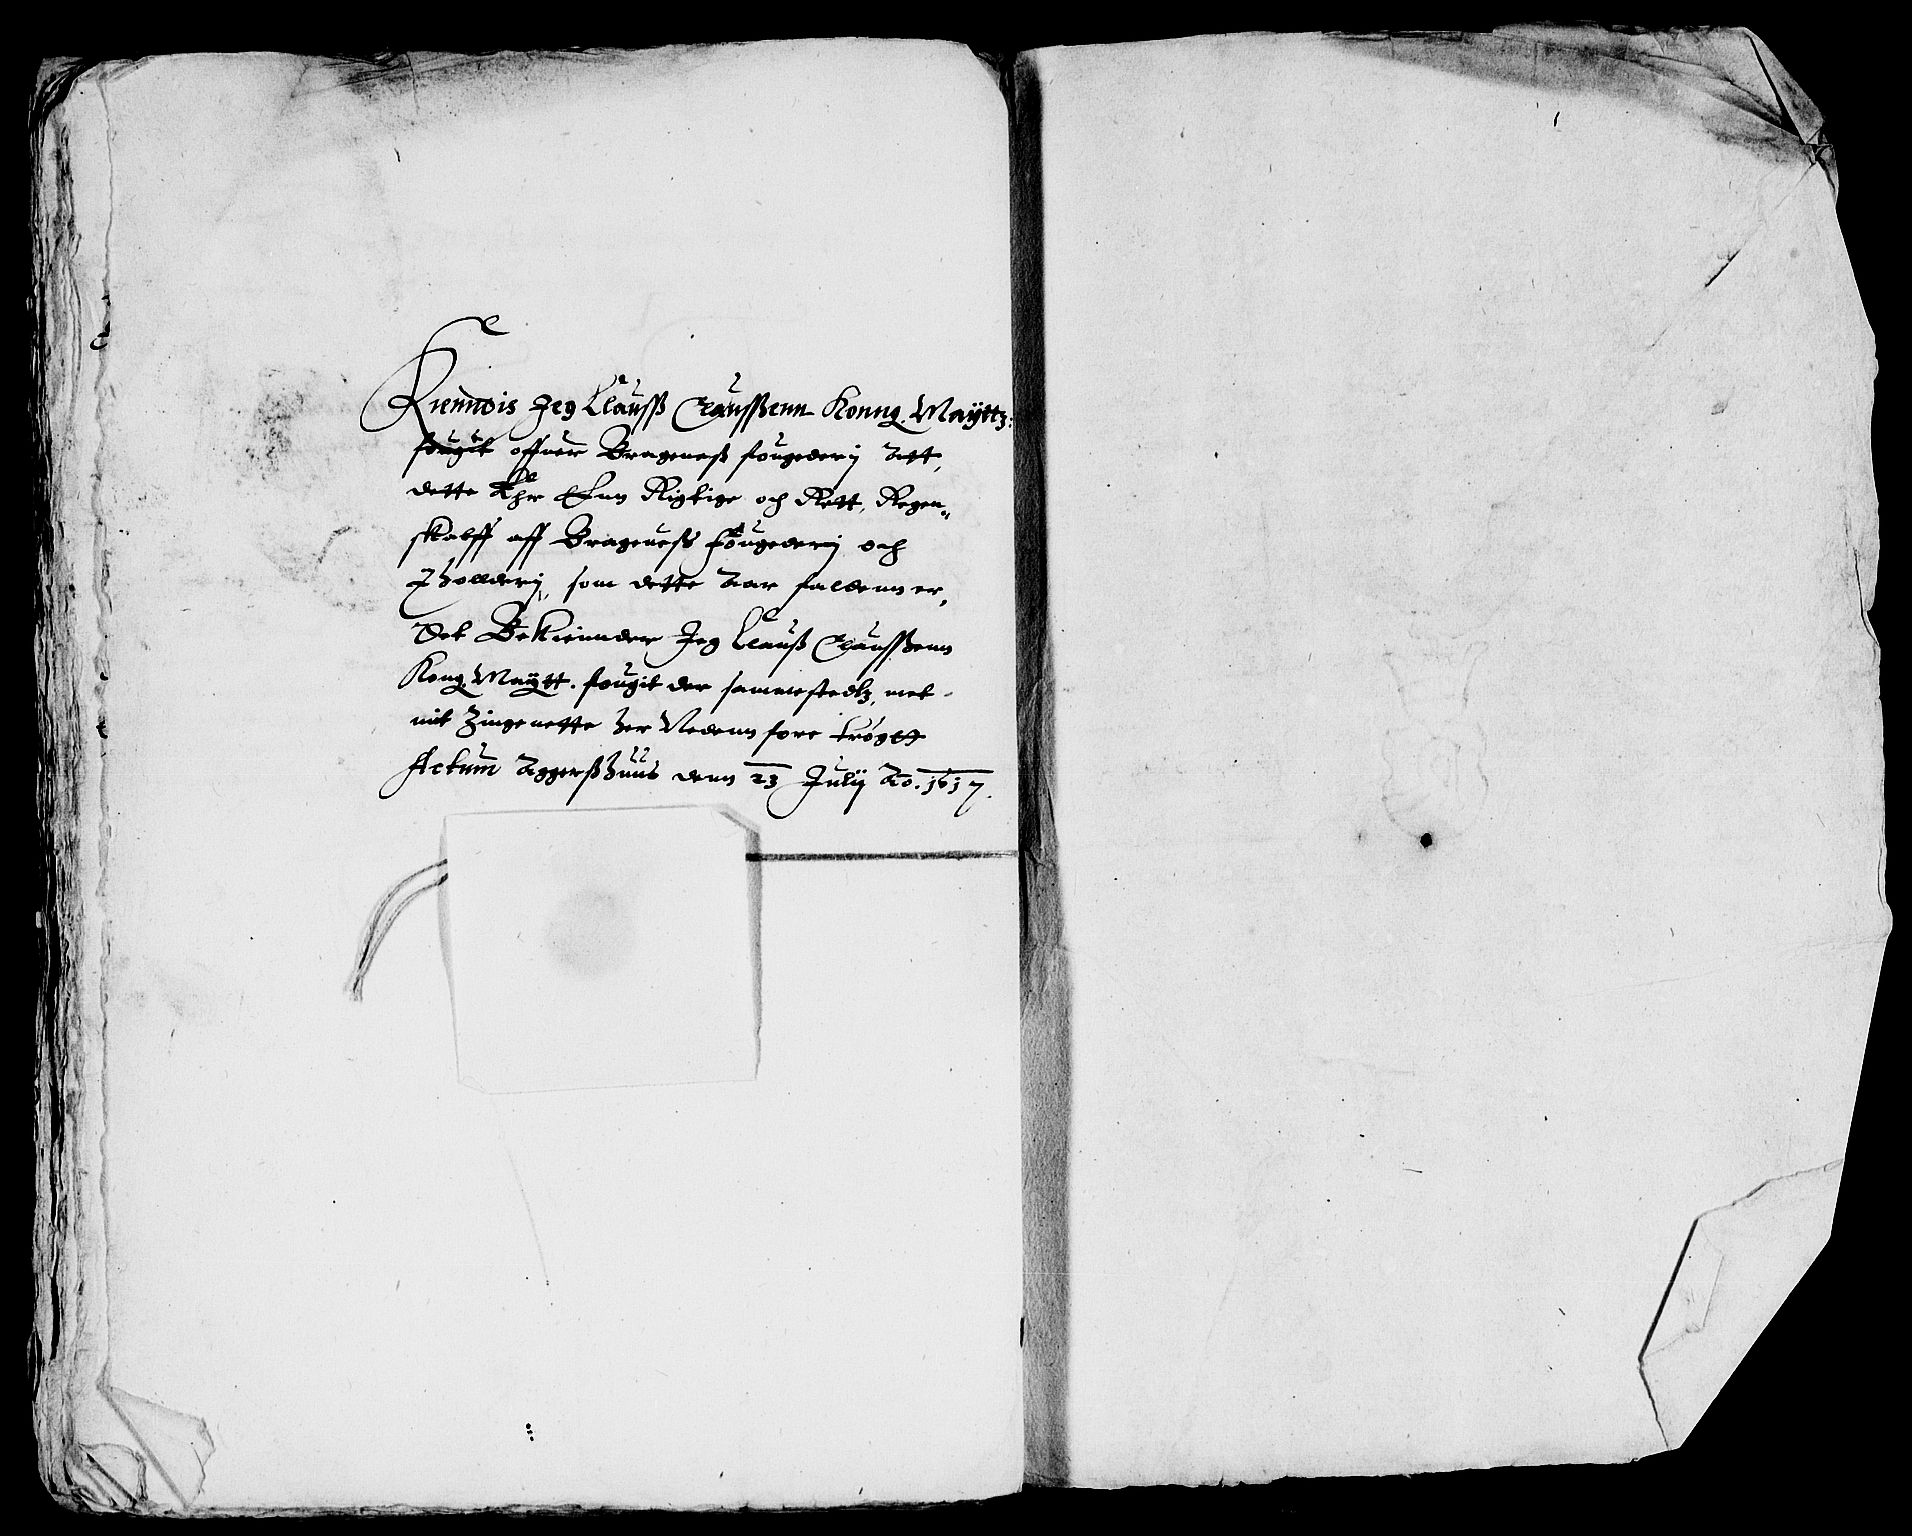 Kiendis Jeg Clauss Claussenn Konng. Mayttz:
fougit offuer Bragenes fougderij Att,
dette Ehr Enn Rigtige och Rett, Regen„
skabff aff Bragness fougederij och
Tholderij, som dette Aar faldenn er,
Det Bekiender Jeg Clauss Claussenn
Kong. Maytt. fougit der sammestedtz, met
mit Zingenette her Nedenn fore trógtt
Actum Aggersshuus denn 23 Julij Ao. 1617.